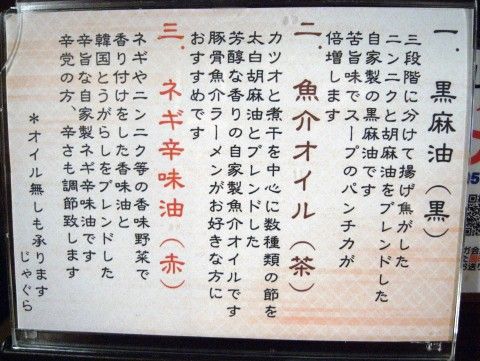 一．黒麻油（黒）
三段階に分けて揚げ焦がした
ニンニクと胡麻油をブレンドした
自家製の黒麻油です
苦旨味でスープのパンチ力が
倍増します
二．魚介オイル（茶）
カツオと煮干を中心に数種類の節を
太白胡麻油とブレンドした
芳醇な香りの自家製魚介オイルです
豚骨魚介ラーメンがお好きな方に
おすすめです
三．ネギ辛味油（赤）
ネギやニンニク等の香味野菜で
香り付けをした香味油と
韓国とうがらしをブレンドした
辛旨な自家製ネギ辛味油です
辛党の方、辛さも調節致します
＊オイル無しも承ります
じゃぐら